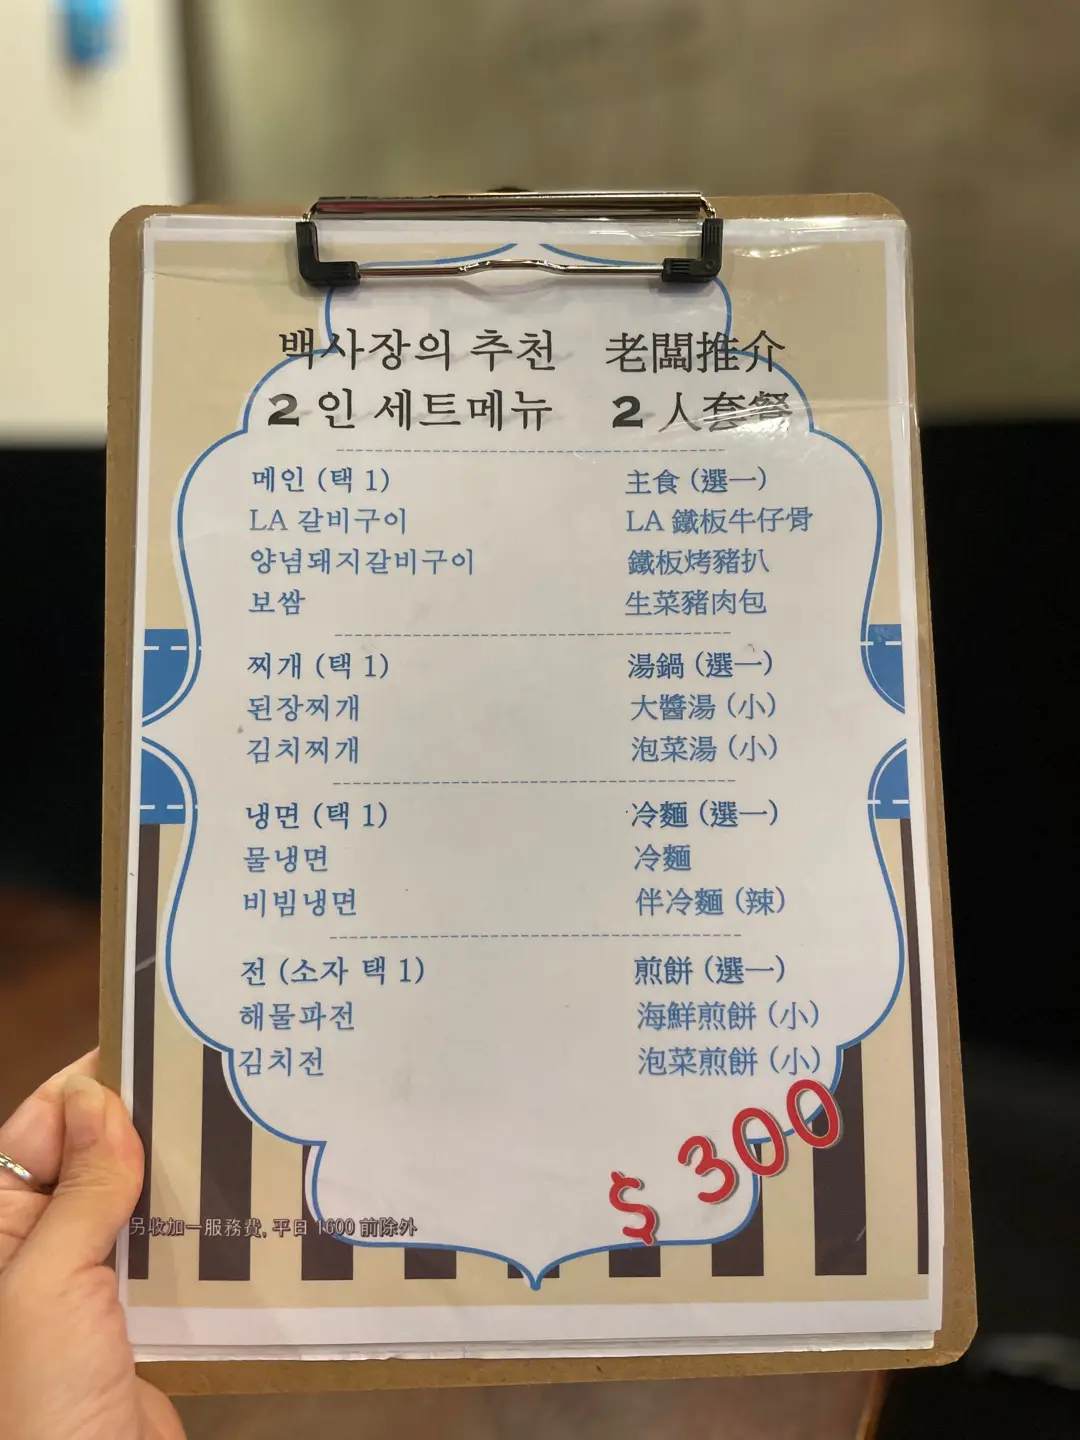 백사장의 추천 老闆推介
2 인 세트메뉴 2 人套餐
메인 (택 1) 主食 (選一)
LA 갈비구이 LA 鐵板牛仔骨
양념돼지갈비구이 鐵板烤豬扒
보쌈 生菜豬肉包
찌개 (택 1) 湯鍋 (選一)
된장찌개 大醬湯 (小)
김치찌개 泡菜湯 (小)
냉면 (택 1) 冷麵 (選一)
물냉면 冷麵
비빔냉면 伴冷麵 (辣)
전 (소자 택 1) 煎餅 (選一)
해물파전 海鮮煎餅 (小)
김치전 泡菜煎餅 (小)
$ 300
另收加一服務費, 平日 1600 前除外